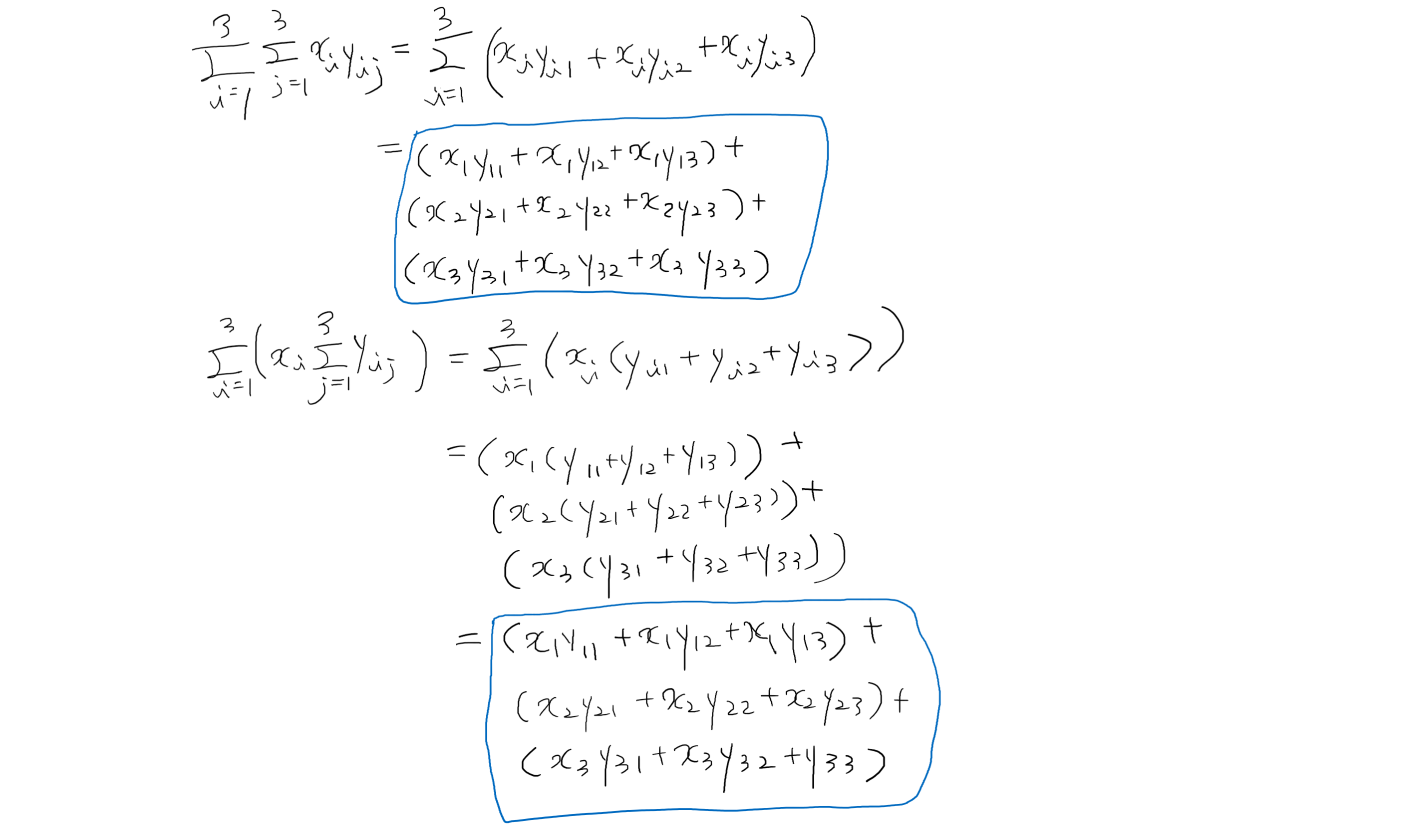 ∑_{i=1}^{3} ∑_{j=1}^{3} x_i y_{ij} = ∑_{i=1}^{3} (x_i y_{i1} + x_i y_{i2} + x_i y_{i3})
= (x_1 y_{11} + x_1 y_{12} + x_1 y_{13}) +
(x_2 y_{21} + x_2 y_{22} + x_2 y_{23}) +
(x_3 y_{31} + x_3 y_{32} + x_3 y_{33})
∑_{i=1}^{3} (x_i ∑_{j=1}^{3} y_{ij}) = ∑_{i=1}^{3} (x_i (y_{i1} + y_{i2} + y_{i3}))
= (x_1 (y_{11} + y_{12} + y_{13})) +
(x_2 (y_{21} + y_{22} + y_{23})) +
(x_3 (y_{31} + y_{32} + y_{33}))
= (x_1 y_{11} + x_1 y_{12} + x_1 y_{13}) +
(x_2 y_{21} + x_2 y_{22} + x_2 y_{23}) +
(x_3 y_{31} + x_3 y_{32} + y_{33})